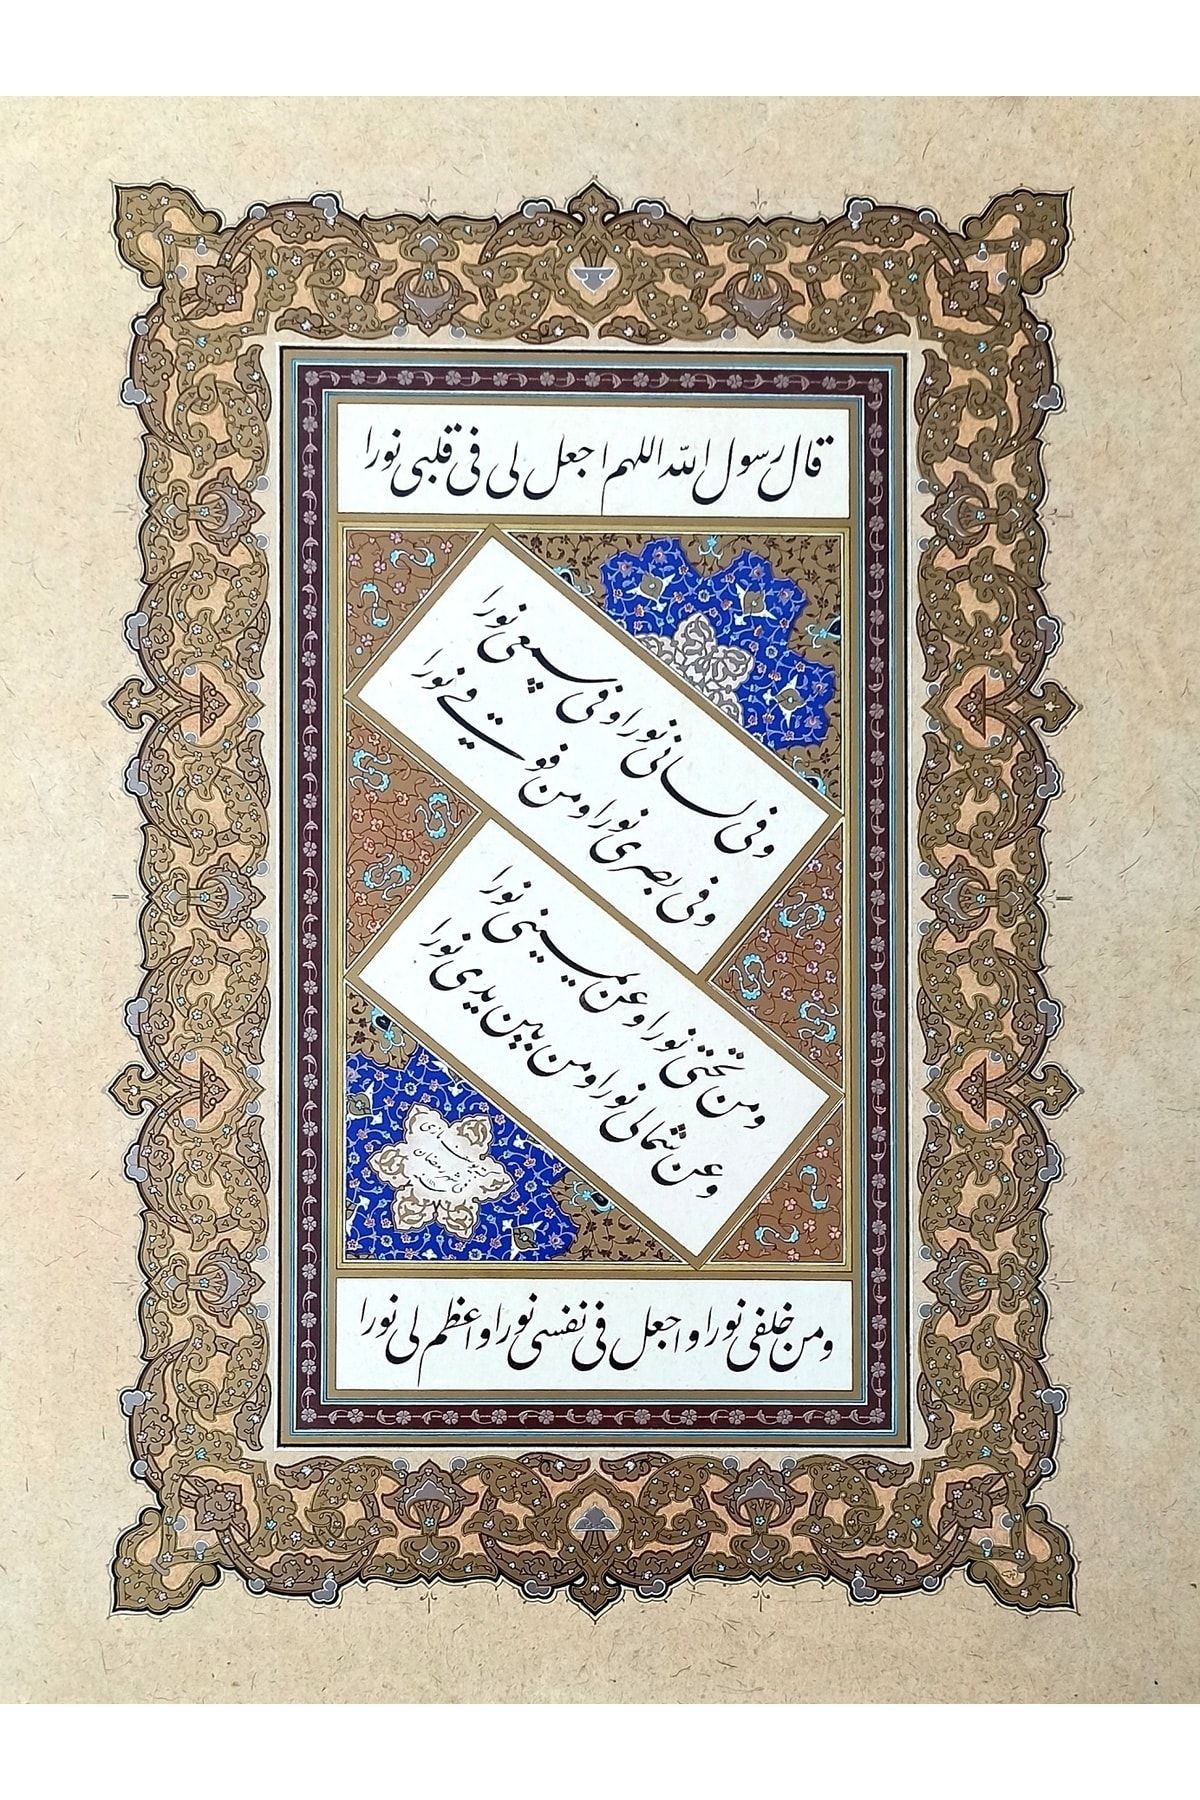 قال رسول الله اللهم اجعل لی فی قلبی نورا
و فی لسانی نورا و فی سمعی نورا
و فی بصری نورا و من فوقی نورا
و من تحتی نورا و عن یمینی نورا
و عن شمالی نورا و من بین یدی نورا
شهر رمضان
و من خلفی نورا و اجعل فی نفسی نورا و اعظم لی نورا